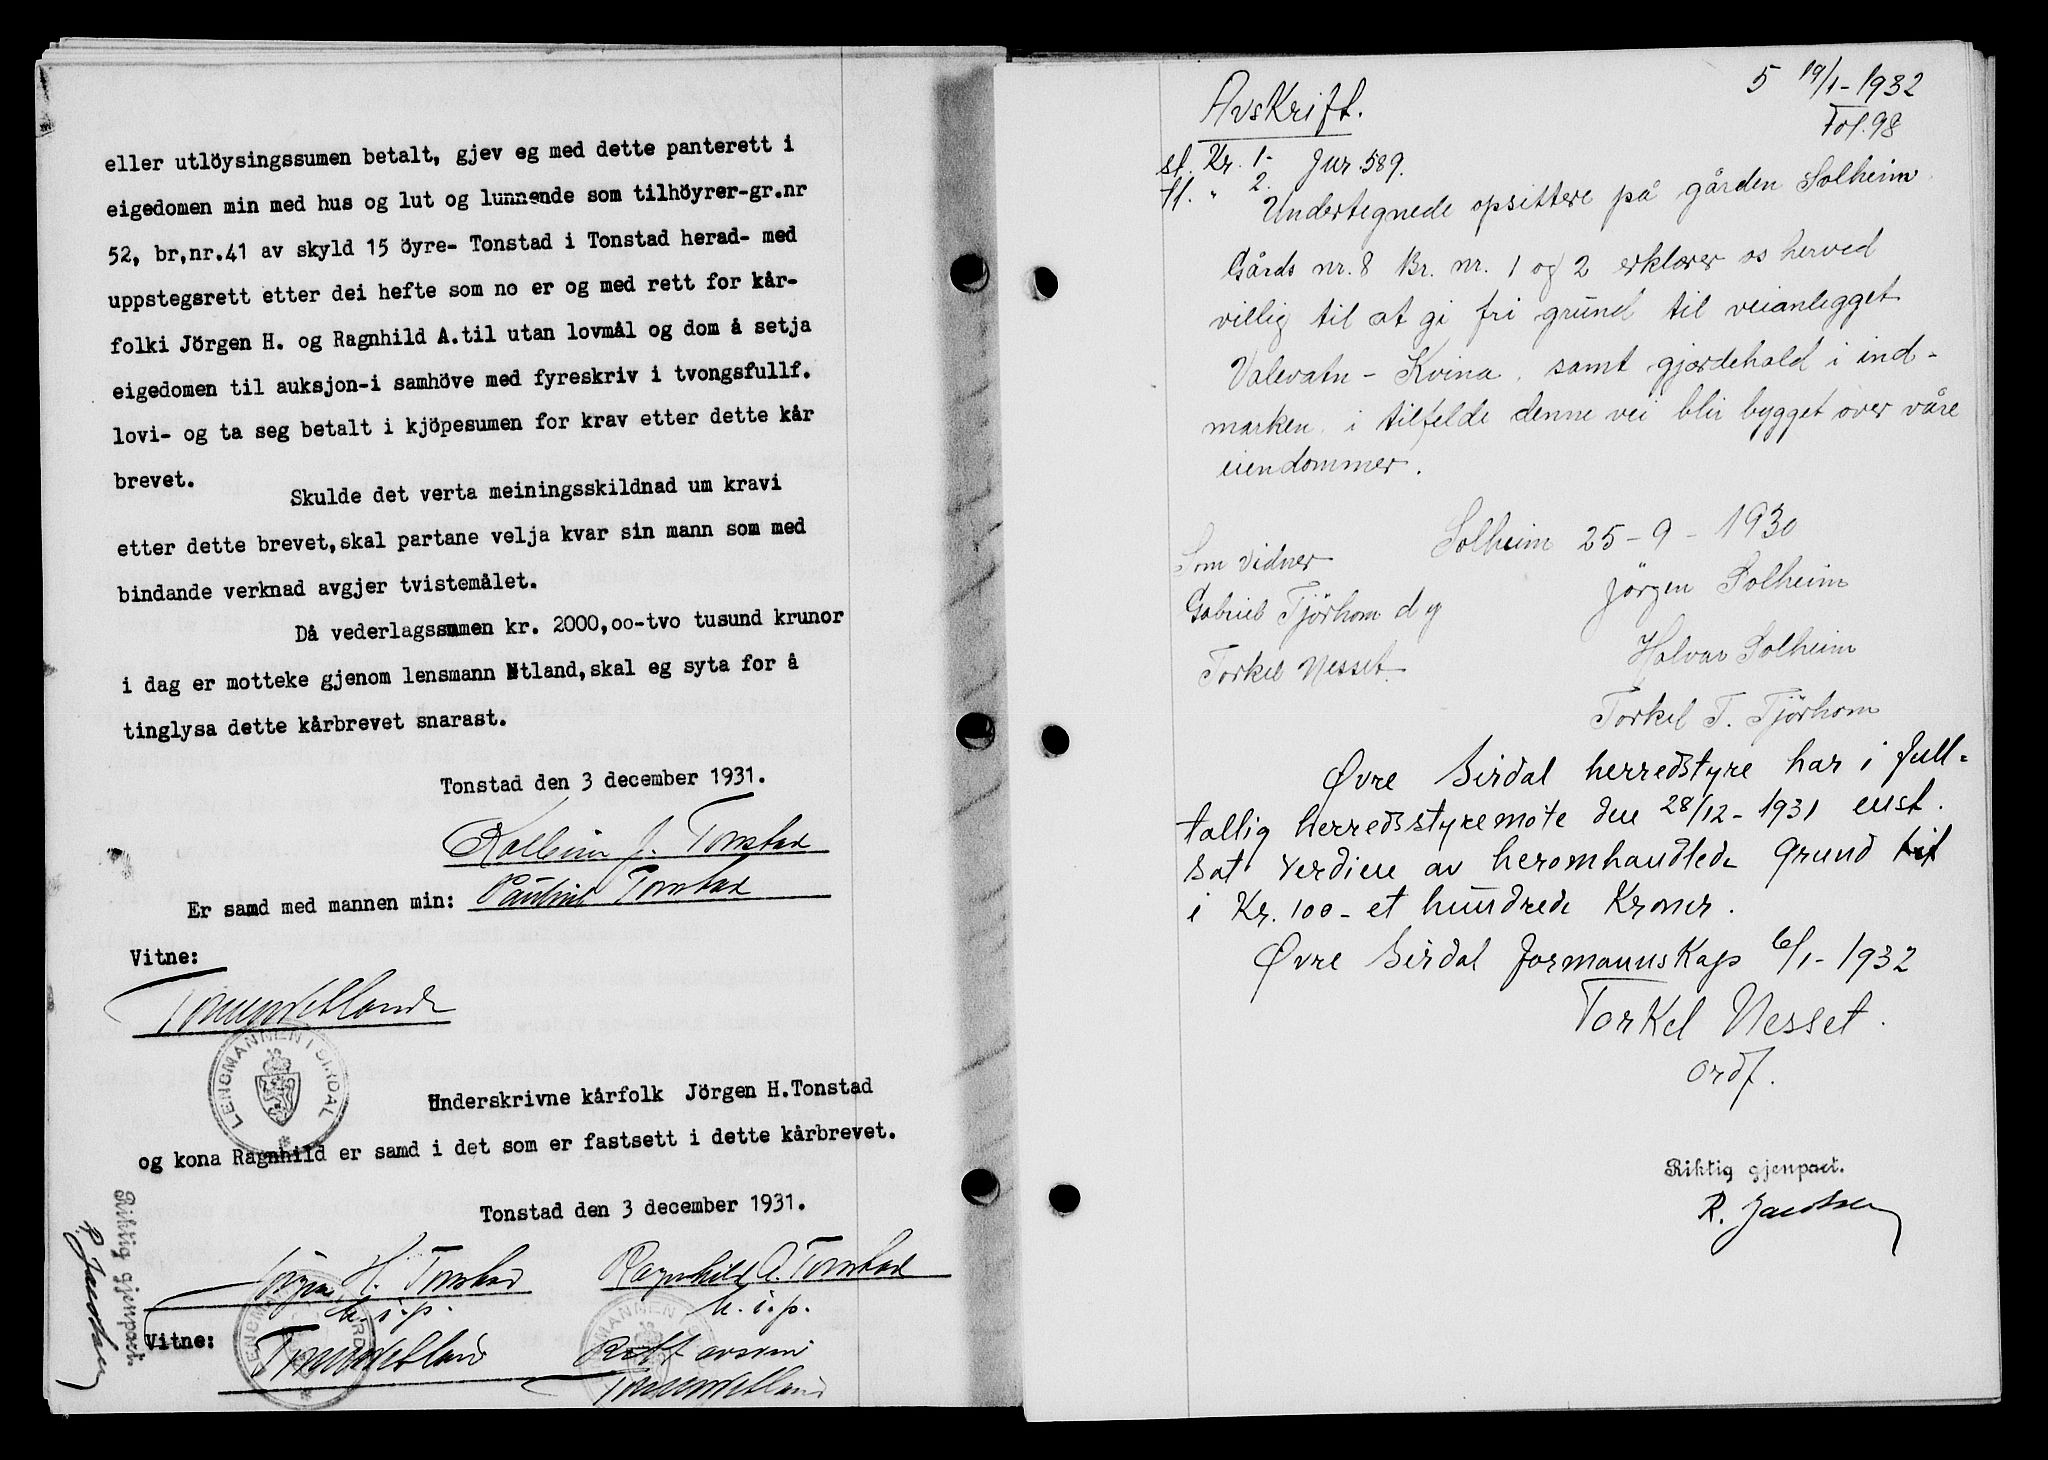 eller utlöysingssumen betalt, gjev eg med dette panterett i
eigedomen min med hus og lut og lunnende som tilhöyrer-gr.nr
52, br,nr.41 av skyld 15 öyre- Tonstad i Tonstad herad- med
uppstegsrett etter dei hefte som no er og med rett for kår-
folki Jörgen H. og Ragnhild A.til utan lovmål og dom å setja
eigedomen til auksjon-i samhöve med fyreskriv i tvongsfullf.
lovi- og ta seg betalt i kjöpesumen for krav etter dette kår
brevet.
Skulde det verta meiningsskildnad um kravi
etter dette brevet,skal partane velja kvar sin mann som med
bindande verknad avgjer tvistemålet.
Då vederlagssumen kr. 2000,oo-tvo tusund krunor
i dag er motteke gjenom lensmann Netland,skal eg syta for å
tinglysa dette kårbrevet snarast.
Tonstad den 3 december 1931.
Kolbein J. Tonstad
Er samd med mannen min: Pauline Tonstad
Vitne:
LENSMANNEN I SIRDAL
Underskrivne kårfolk Jörgen H.Tonstad
og kona Ragnhild er samd i det som er fastsett i dette kårbrevet.
Tonstad den 3 december 1931.
Jörgen H. Tonstad Ragnhild A. Tonstad
h. i. p. h. i. p.
Vitne:
Rett avskrift
Riktig gjenpart.
R. Jacobsen
5 19/1-1932
Fol. 98
Avskrift.
st. Kr. 1- Jur. 589.
tl. " 2.
Undertegnede opsittere på gården Solheim
Gårds nr. 8 Br. nr. 1 og 2 erklærer os herved
villig til at gi fri grund til veianlegget
Valevatn - Kvina, samt gjærdehold i ind-
marken, i tilfelde denne vei blir bygget over våre
eiendommer.
Solheim 25-9-1930
Som vidner
Jörgen Solheim
Gabriel Tjörhom d y
Halvar Solheim
Torkel Nesset
Torkel T. Tjörhom
Øvre Sirdal herredstyre har i full-
tallig herredsstyremöte den 28/12-1931 enst.
sat verdien av heromhandlede grund til
i Kr. 100- et hundrede Kroner.
Øvre Sirdal formannskap 6/1-1932
Torkel Nesset.
ordf.
Riktig gjenpart.
R. Jacobsen